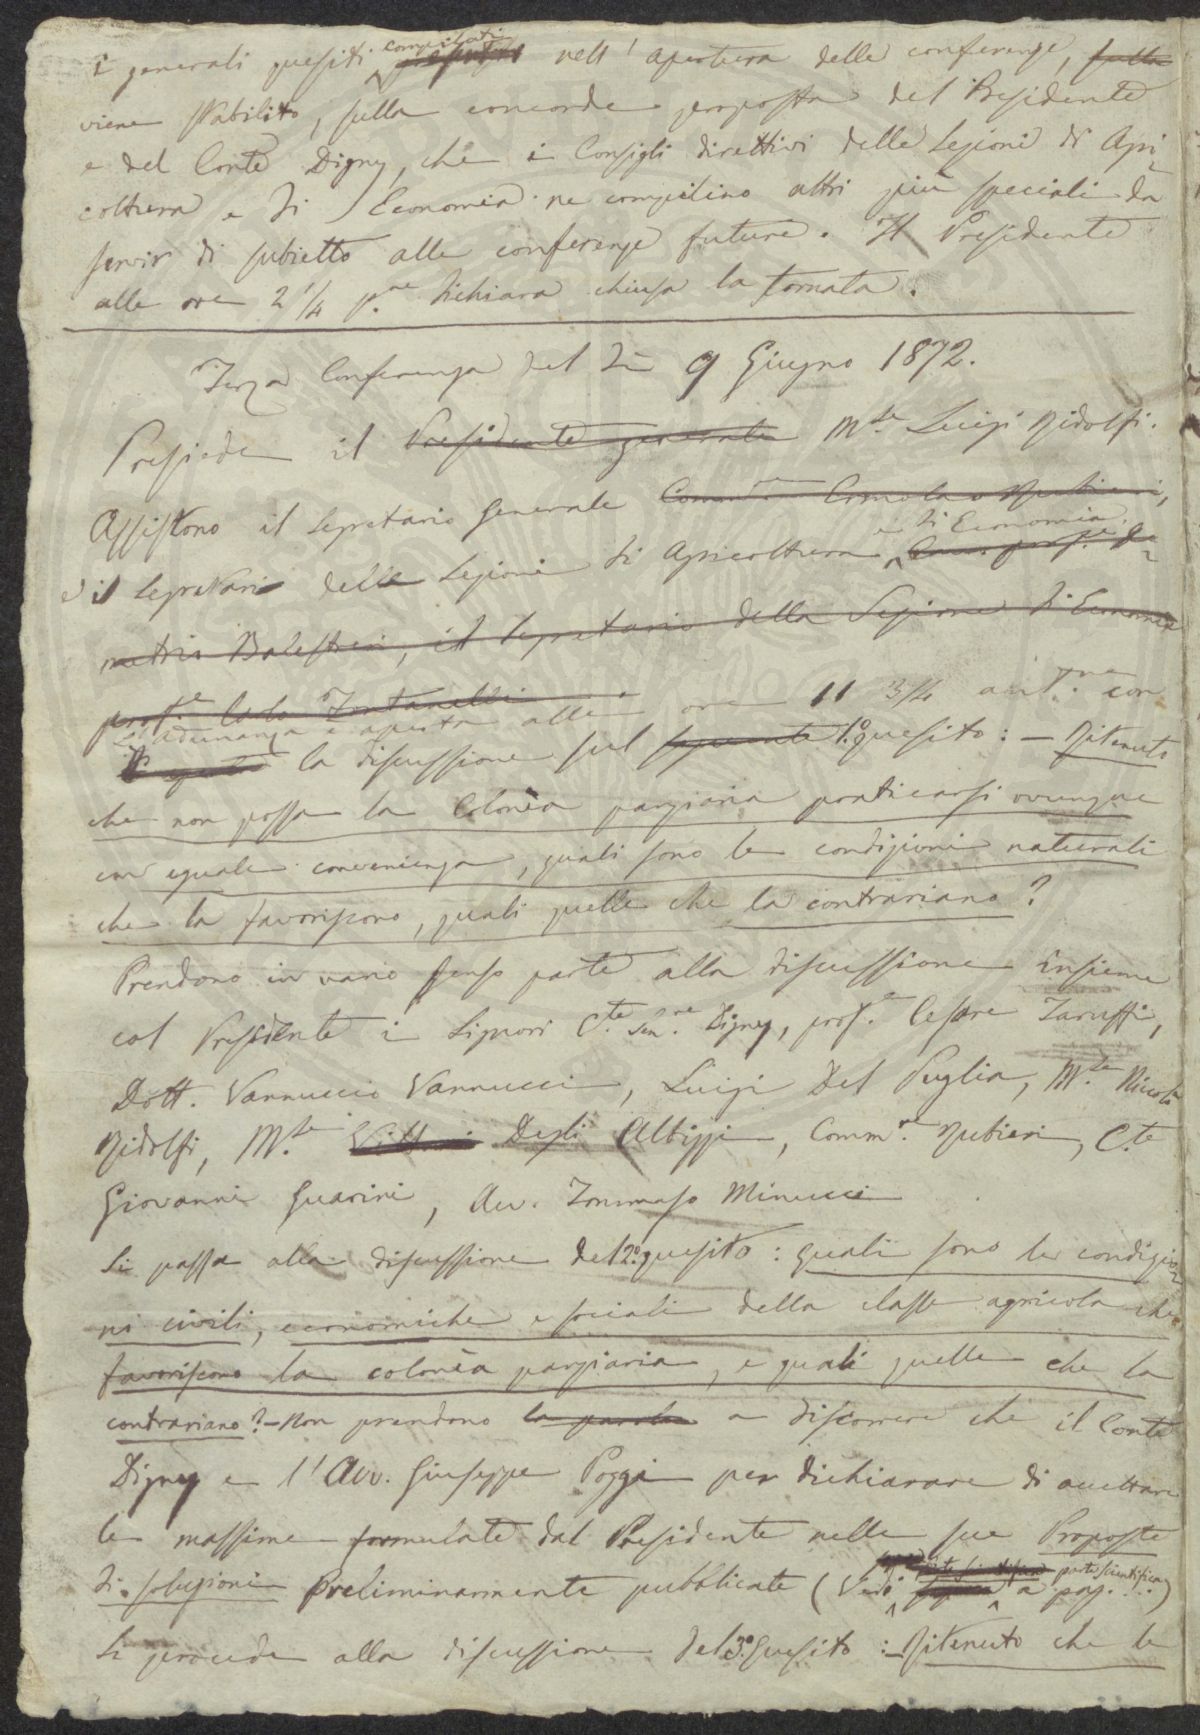 i generali quesiti compilati nell'apertura delle conferenze, sulla
viene stabilito, sulla concorde proposta del Presidente
e del Conte Digny, che i Consigli direttivi delle Sezioni di Agri-
coltura e di Economia ne compilino altri più speciali da
servir di subietto alle conferenze future. Il Presidente
alle ore 2 1/4 p.ne dichiara chiusa la tornata.
Terza Conferenza del dì 9 Giugno 1872.
Presiede il Presidente generale M.se Luigi Ridolfi.
Assistono il Segretario Generale Comm.re Ermolao Rubieri,
e di Economia.
e il Segretario delle Sezioni di Agricoltura De-
metrio Balestrieri, il Segretario della Sezione di Economia
prof.e Carlo Fontanelli
L'adunanza è aperta alle ore 11 3/4 ant.ne con
la discussione sul seguente 1.º quesito: — Ritenuto
che non possa la Colonìa parziaria praticarsi ovunque
con eguale convenienza, quali sono le condizioni naturali
che la favoriscono, quali quelle che la contrariano?
Prendono in vario senso parte alla discussione insieme
col Presidente i Signori C.te Sen.re Digny, prof.e Cesare Taruffi,
Dott. Vannuccio Vannucci, Luigi Del Puglia, M.se Niccolò
Ridolfi, M.se Degli Albizzi, Comm.re Rubieri, C.te
Giovanni Guarini, Avv. Tommaso Minucci
Si passa alla discussione del 2.º quesito: quali sono le condizio-
ni civili, economiche e sociali della classe agricola che
favoriscono la colonìa parziaria, e quali quelle che la
contrariano? — Non prendono la parola a discorrere che il Conte
Digny e l'Avv. Giuseppe Poggi per dichiarare di accettare
le massime formulate dal Presidente nelle sue Proposte
di soluzioni preliminarmente pubblicate (Vedi parte scientifica a pag. ...)
Si procede alla discussione del 3.º quesito: — Ritenuto che le